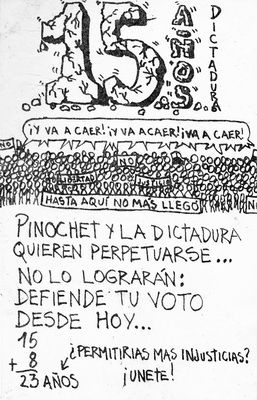 15 AÑOS DICTADURA
¡Y VA A CAER! ¡Y VA A CAER! ¡VA A CAER!
NO
NO
NO
LIBERTAD
HASTA AQUÍ NO MÁS LLEGÓ
PINOCHET Y LA DICTADURA
QUIEREN PERPETUARSE...
NO LO LOGRARÁN:
DEFIENDE TU VOTO
DESDE HOY...
15
+ 8
23 AÑOS
¿PERMITIRIAS MAS INJUSTICIAS?
¡UNETE!